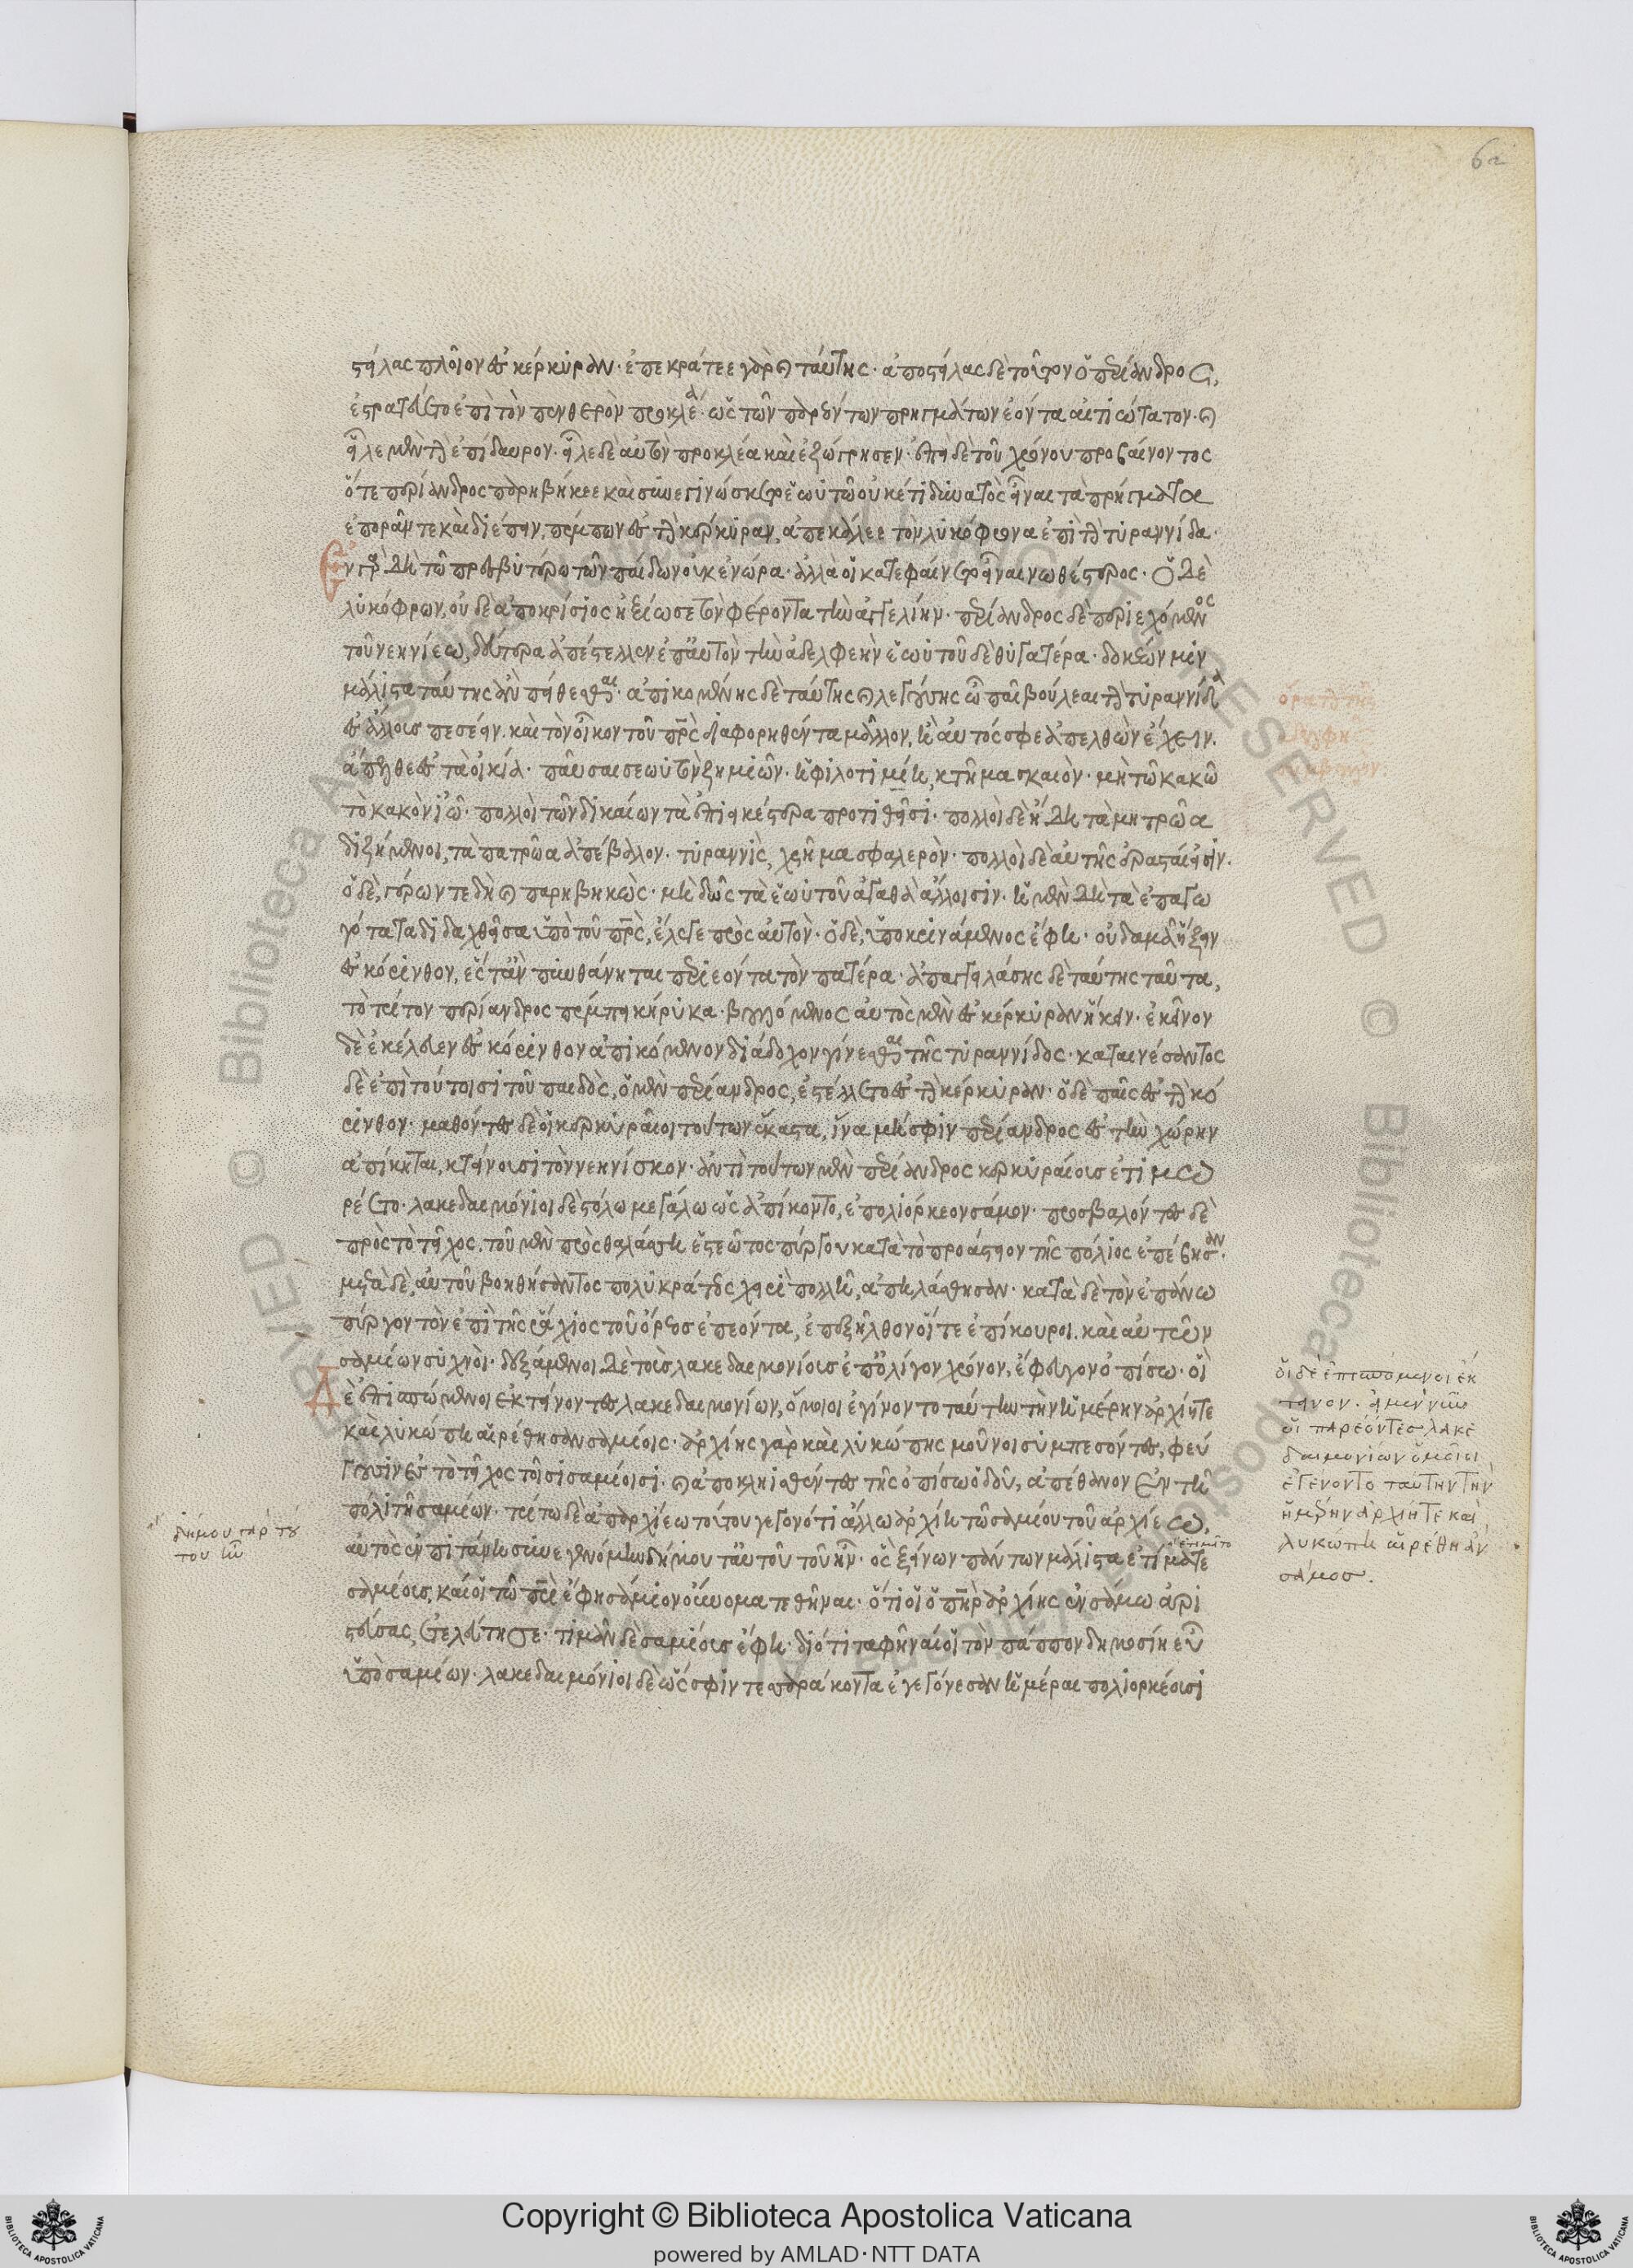 62
στείλας πλοῖον ἐς κέρκυραν· ἐπεκράτεε γὰρ καὶ ταύτης· ἀποστείλας δὲ τοῦτον ὁ περίανδρος,
ἐστρατεύετο ἐπὶ τὸν πενθερὸν προκλέα· ὡς τῶν παρεόντων πρηγμάτων ἐόντα αἰτιώτατον· καὶ
εἷλε μὲν τὴν ἐπίδαυρον· εἷλε δὲ αὐτὸν προκλέα καὶ ἐζώγρησεν· ἐπεὶ δὲ τοῦ χρόνου προβαίνοντος
ὅτε περίανδρος παρηβήκεε καὶ συνεγινώσκετο ἑωυτῶ οὐκέτι δυνατὸς εἶναι τὰ πρήγματα
ἐπορᾶν τε καὶ διέπειν, πέμπων ἐς τὴν κερκύραν, ἀπεκάλεε τὸν λυκόφρονα ἐπὶ τὴν τυραννίδα·
ἐν γὰρ δὴ τῶ πρεσβυτέρω τῶν παίδων οὐκ ἐνώρα· ἀλλά οἱ κατεφαίνετο εἶναι νωθέστερος· ὁ δὲ
λυκόφρων, οὐδὲ ἀποκρίσιος ἠξίωσε τὸν φέροντα τὴν ἀγγελίην· περίανδρος δὲ περιεχόμενος
τοῦ νεηνίεω, δεύτερα ἀπέστελλεν ἐπ' αὐτὸν τὴν ἀδελφεὴν ἑωυτοῦ δὲ θυγατέρα· δοκέων μιν
μάλιστα ταύτης ἂν πείθεσθαι· ἀπικομένης δὲ ταύτης καὶ λεγούσης ὦ παῖ βούλεαι τὴν τυραννίδα
ἐς ἄλλους πεσέειν. καὶ τὸν οἶκον τοῦ πρς διαφορηθέντα μᾶλλον, ἢ αὐτός σφε ἀπελθὼν ἔχειν.
ἄπιθι ἐς τὰ οἰκία· παῦσαι σεωυτὸν ζημιῶν· φιλοτιμίη, κτῆμα σκαιόν· μὴ τῶ κακῶ
τὸ κακὸν ἰῶ· πολλοὶ τῶν δικαίων τὰ ἐπιεικέστερα προτιθεῖσι· πολλοὶ δὲ ἤδη τὰ μητρῶα
διζήμενοι, τὰ πατρῶα ἀπέβαλον· τυραννὶς, χρῆμα σφαλερὸν· πολλοὶ δὲ αὐτῆς ἐρασταί εἰσιν.
ὁ δὲ, γέρων τε ἤδη καὶ παρηβηκὼς· μὴ δῶς τὰ ἑωυτοῦ ἀγαθὰ ἄλλοισιν· ἡ μὲν δὴ τὰ ἐπαγω
γότατα διδαχθεῖσα ὑπὸ τοῦ πρς, ἔλεγε πρὸς αὐτὸν· ὁ δὲ, ὑποκρινάμενος ἔφη· οὐδαμὰ ἥξειν
ἐς κόρινθον, ἔς τ' ἂν πυνθάνηται περιεόντα τὸν πατέρα· ἀπαγγειλάσης δὲ ταύτης ταῦτα,
τὸ τρίτον περίανδρος πέμπει κήρυκα· βουλόμενος αὐτὸς μὲν ἐς κέρκυραν ἥκειν· ἐκεῖνον
δὲ ἐκέλευεν ἐς κόρινθον ἀπικόμενον διάδοχον γίνεσθαι τῆς τυραννίδος· καταινέσαντος
δὲ ἐπὶ τούτοισι τοῦ παιδὸς, ὁ μὲν περίανδρος, ἐστέλλετο ἐς τὴν κέρκυραν· ὁ δὲ παῖς ἐς τὴν κό
ρινθον· μαθόντες δὲ οἱ κερκυραῖοι τούτων ἕκαστα, ἵνα μή σφιν περίανδρος ἐς τὴν χώρην
ἀπίκηται, κτείνουσι τὸν νεηνίσκον· ἀντὶ τούτων μὲν περίανδρος κερκυραίους ἐτιμω
ρέετο· λακεδαιμόνιοι δὲ στόλω μεγάλω ὡς ἀπίκοντο, ἐπολιόρκεον σάμον· προσβαλόντες δὲ
πρὸς τὸ τεῖχος, τοῦ μὲν πρὸς θαλάσση ἑστεῶτος πύργου κατὰ τὸ προάστειον τῆς πόλιος ἐπέβησαν·
μετὰ δὲ, αὐτοῦ βοηθήσαντος πολυκράτεος χειρὶ πολλῆ, ἀπηλάσθησαν· κατὰ δὲ τὸν ἐπάνω
πύργον τὸν ἐπὶ τῆς ῥάχιος τοῦ ὄρεος ἐπεόντα, ἐπεξῆλθον οἵ τε ἐπίκουροι. καὶ αὐτῶν
σαμίων συχνοὶ· δεξάμενοι δὲ τοὺς λακεδαιμονίους ἐπ' ὀλίγον χρόνον, ἔφευγον ὀπίσω· οἱ
δὲ ἐπισπώμενοι ἔκτεινον τες λακεδαιμονίων, ὅμοιοι ἐγίνοντο ταύτην τὴν ἡμέρην ἀρχίητε
καὶ λυκώπη αἱρέθησαν σαμίοις· ἀρχίης γὰρ καὶ λυκώπης μοῦνοι συμπεσόντες, φεύ
γουσιν ἐς τὸ τεῖχος τοῖσι σαμίοισι. καὶ ἀποκληισθέντες τῆς ὀπίσω ὁδοῦ, ἀπέθανον ἐν τῆ
πόλι τῆ σαμίων· τρίτω δὲ ἀπ' ἀρχίεω τούτου γεγονότι ἄλλω ἀρχίη τῶ σαμίου τοῦ ἀρχίεω,
αὐτὸς ἐν πιτάνη συνεγενόμην δήμου ταύτου τοῦ ἦν· ὃς ξείνων πάντων μάλιστα ἐτίματε
σαμίους, καί οἱ τῶ πρὶ ἔφη σάμιον οὔνομα τεθῆναι· ὅτι οἱ ὁ πηρ ἀρχίης ἐν σάμω ἀρι
στεύσας, ἐτελεύτησε· τιμᾶν δὲ σαμίους ἔφη· διότι ταφῆναί οἱ τὸν πάππον δημοσίη εὖ
ὑπὸ σαμίων· λακεδαιμόνιοι δὲ ὥς σφιν τεσσαράκοντα ἐγεγόνεσαν ἡμέραι πολιορκέουσι
οἱ δὲ ἐπισπόμενοι ἔκ
τεινον. εἰ μέν νυν
οἱ παρεόντες λακε
δαιμονίων ὅμοιοι
ἐγένοντο ταύτην τὴν
ἡμέρην ἀρχίη τε καὶ
λυκώπη αἱρέθη ἂν
σάμος.
δήμου γὰρ τού
του ἦν
ἐτιμᾶτο